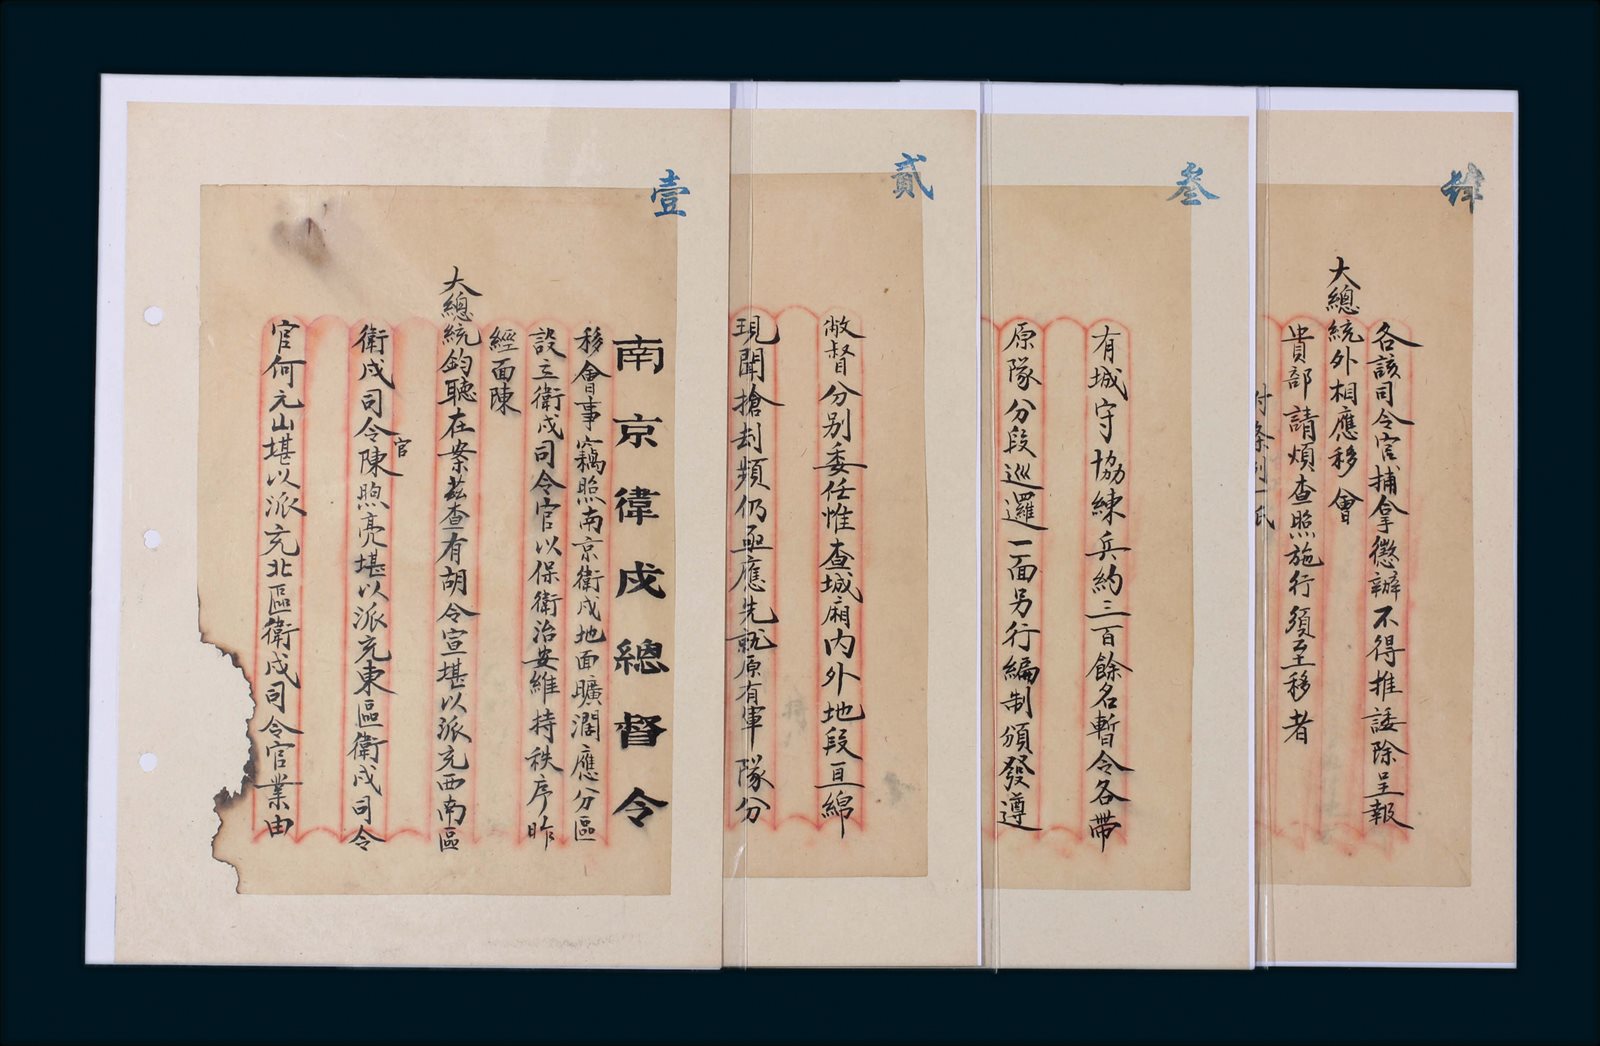 壹
南京衛戍總督令
移會事竊照南京衛戍地面曠濶應分區
設立衛戍司令官以保衛治安維持秩序昨
經面陳
大總統鈞聽在案茲查有胡令宣堪以派充西南區
衛戍司令官陳煦亮堪以派充東區衛戍司令
官何元山堪以派充北區衛戍司令官業由
貳
敝督分別委任惟查城廂內外地段亘綿
現聞搶刦頻仍亟應先就原有軍隊分
叁
有城守協練兵約三百餘名暫令各帶
原隊分段巡邏一面另行編制頒發遵
肆
各該司令官捕拿懲辦不得推諉除呈報
大總統外相應移會
貴部請煩查照施行須至移者